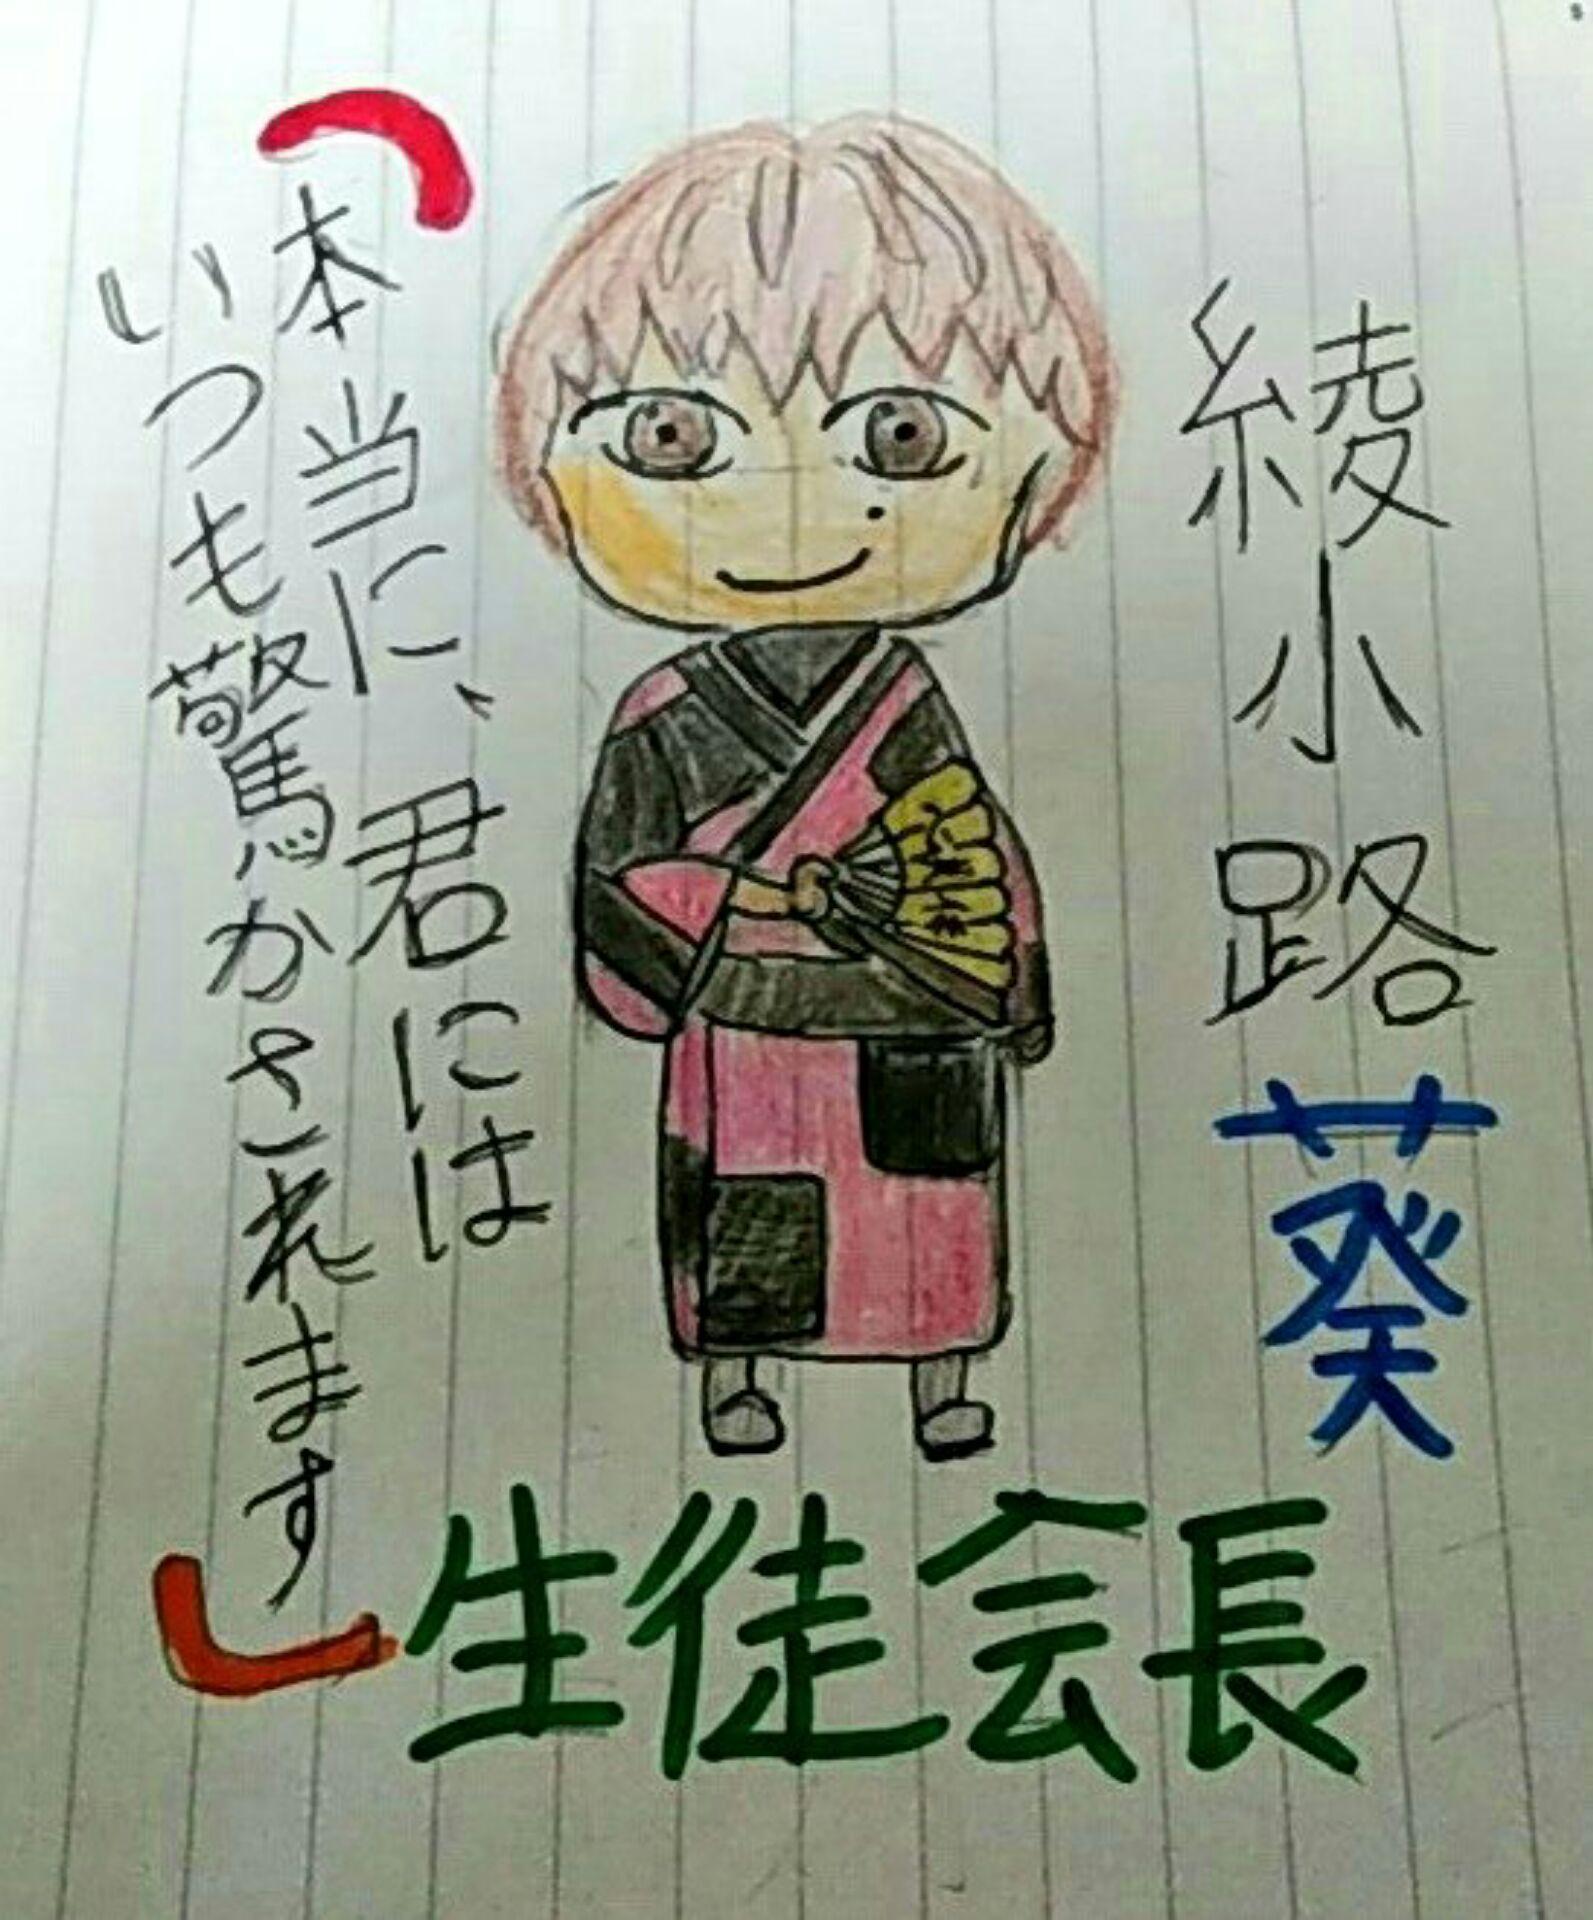 綾小路葵
「本当に、君には
いつも驚かされます」
生徒会長